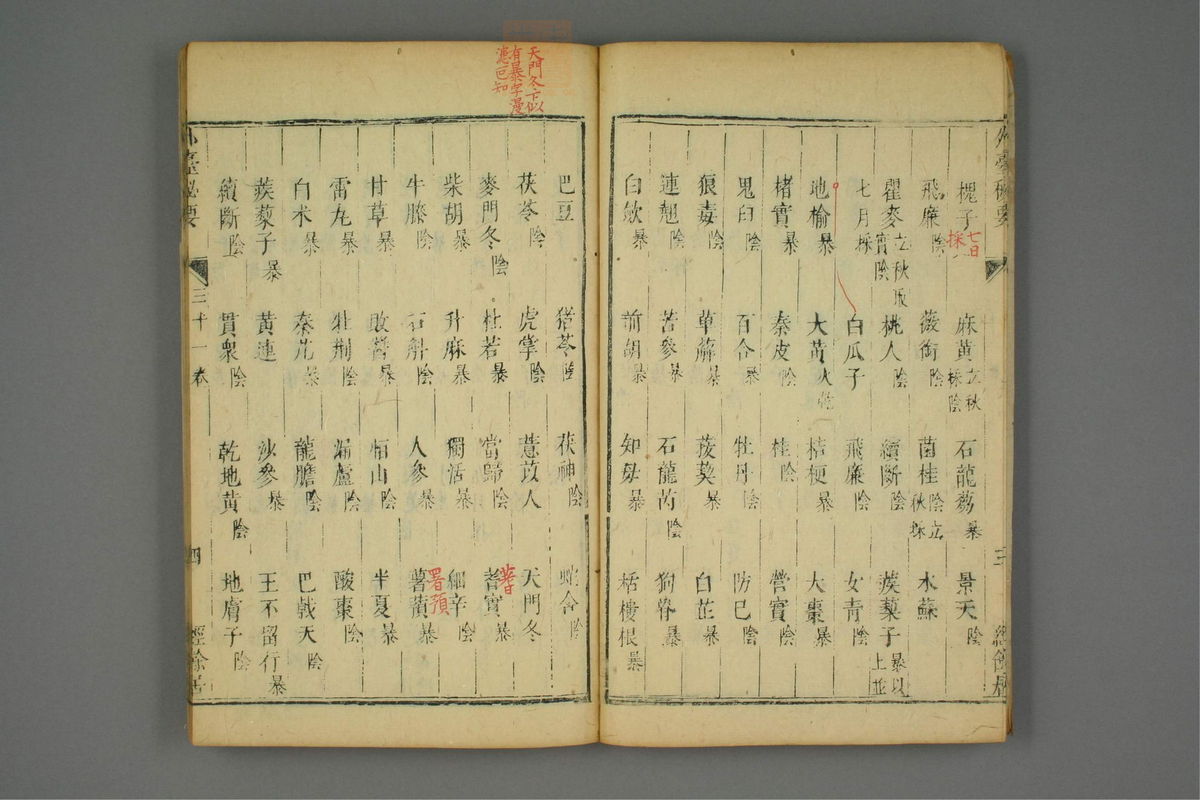 外臺秘要
槐子 七日採 麻黃 立秋採陰 石龍蒭 暴 景天 陰
飛廉 陰 薇銜 陰 菌桂 陰立秋採 水蘇
瞿麥 立秋取實陰 桃人 陰 續斷 陰 蒺藜子 暴以上並
七月採 白瓜子 飛廉 陰 女青 陰
地榆 暴 大黃 火乾 桔梗 暴 大棗 暴
楮實 暴 秦皮 陰 桂 陰 營實 陰
鬼臼 陰 百合 暴 牡丹 陰 防己 陰
狼毒 陰 萆薢 暴 菝葜 暴 白芷 暴
連翹 陰 苦參 暴 石龍芮 陰 狗脊 暴
白斂 暴 前胡 暴 知母 暴 栝樓根 暴
三 經餘居
天門冬下似
有暴字漫
漶已知
巴豆 猪苓 陰 茯神 陰 蛇含 陰
茯苓 陰 虎掌 陰 薏苡人 天門冬
麥門冬 陰 杜若 暴 當歸 陰 蓍實 暴
蓍
柴胡 暴 升麻 暴 獨活 暴 細辛 陰
牛膝 陰 石斛 陰 人參 暴 薯蕷 暴
署預
甘草 暴 敗醬 暴 恒山 陰 半夏 暴
雷丸 暴 牡荆 陰 漏蘆 陰 酸棗 陰
白术 暴 秦艽 暴 龍膽 陰 巴戟天 陰
蒺藜子 暴 黃連 沙參 暴 王不留行 暴
續斷 陰 貫衆 陰 乾地黃 陰 地膚子 陰
外臺秘要 三十一卷 四 經餘居